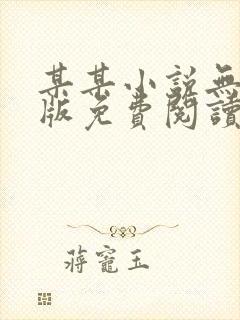 某某小說無
版免費閱讀
蔣寵玉